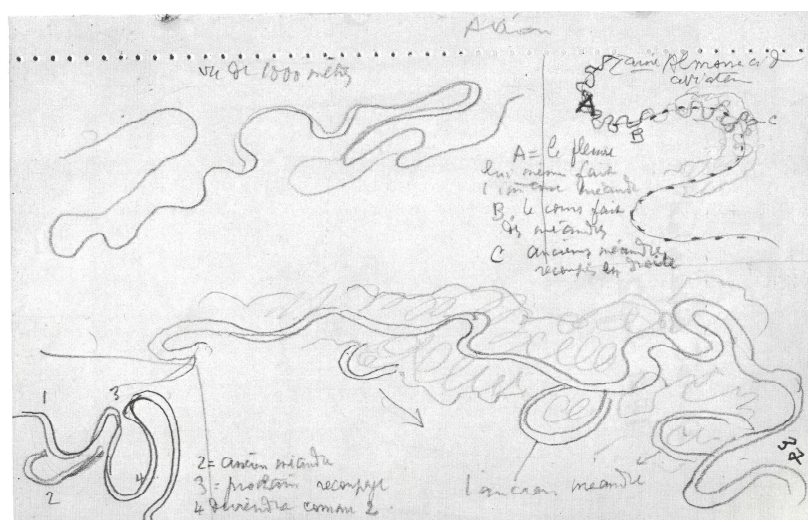 Avion
vu de 1000 mètres
Almonacid
aviateur
A
C
B
A = le fleuve
lui même fait
l'immense méandre
B. le cours fait
des méandres
C anciens méandres
recoupés en droite
1
3
2
4
2 = ancien méandre
3 = prochain recoupage
4 deviendra comme 2
l'ancien méandre